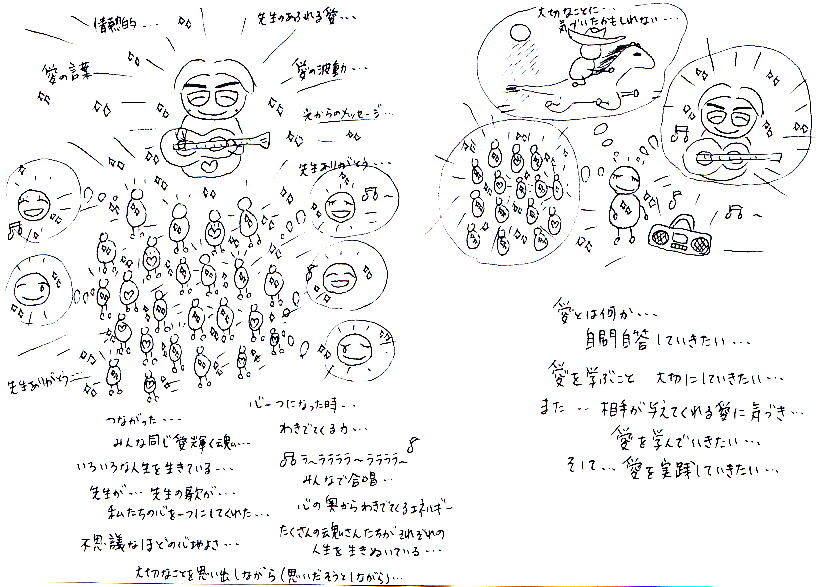 情熱的・・・
先生のあふれる愛・・・
愛の言葉
愛の波動・・・
光からのメッセージ・・・
先生ありがとう・・・
先生ありがとう・・・
つながった・・・
みんな同じ愛輝く魂・・・
いろいろな人生を生きている・・・
先生が・・・先生の歌が・・・
私たちの心を一つにしてくれた・・・
不思議なほどの心地よさ・・・
心一つになった時・・・
わきでてくる力・・・
ラ〜ララララ〜ララララ〜
みんなで合唱・・・
心の奥からわきでてくるエネルギー
たくさんの魂さんたちがそれぞれの
人生を生きぬいている・・・
大切なことを思い出しながら(思いだそうとしながら)・・・
大切なことに・・・
気づいたかもしれない・・・
愛とは何か・・・
自問自答していきたい・・・
愛を学ぶこと 大切にしていきたい・・・
また・・相手が与えてくれる愛に気づき・・・
愛を学んでいきたい・・・
そして・・・愛を実践していきたい・・・